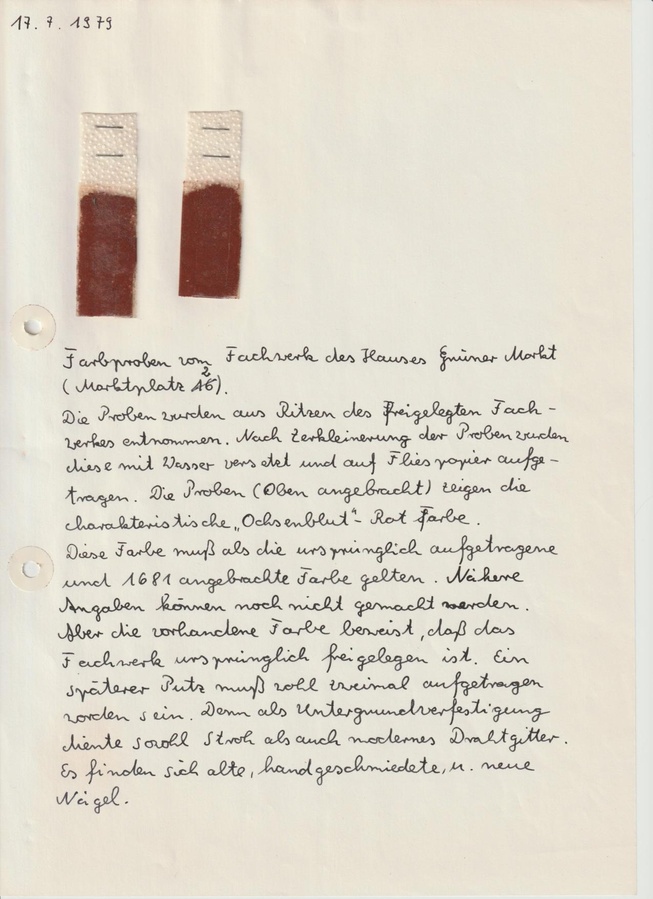 17. 7. 1979
Farbproben vom Fachwerk des Hauses Grüner Markt
2
(Marktplatz 16).
Die Proben wurden aus Ritzen des freigelegten Fach-
werkes entnommen. Nach Zerkleinerung der Proben wurden
diese mit Wasser versetzt und auf Fliespapier aufge-
tragen. Die Proben (Oben angebracht) zeigen die
charakteristische „Ochsenblut“- Rot Farbe.
Diese Farbe muß als die ursprünglich aufgetragene
und 1681 angebrachte Farbe gelten. Nähere
Angaben können noch nicht gemacht werden.
Aber die vorhandene Farbe beweist, daß das
Fachwerk ursprünglich freigelegen ist. Ein
späterer Putz muß wohl zweimal aufgetragen
worden sein. Denn als Untergrundverfestigung
diente sowohl Stroh als auch modernes Drahtgitter.
Es finden sich alte, handgeschmiedete, u. neue
Nägel.